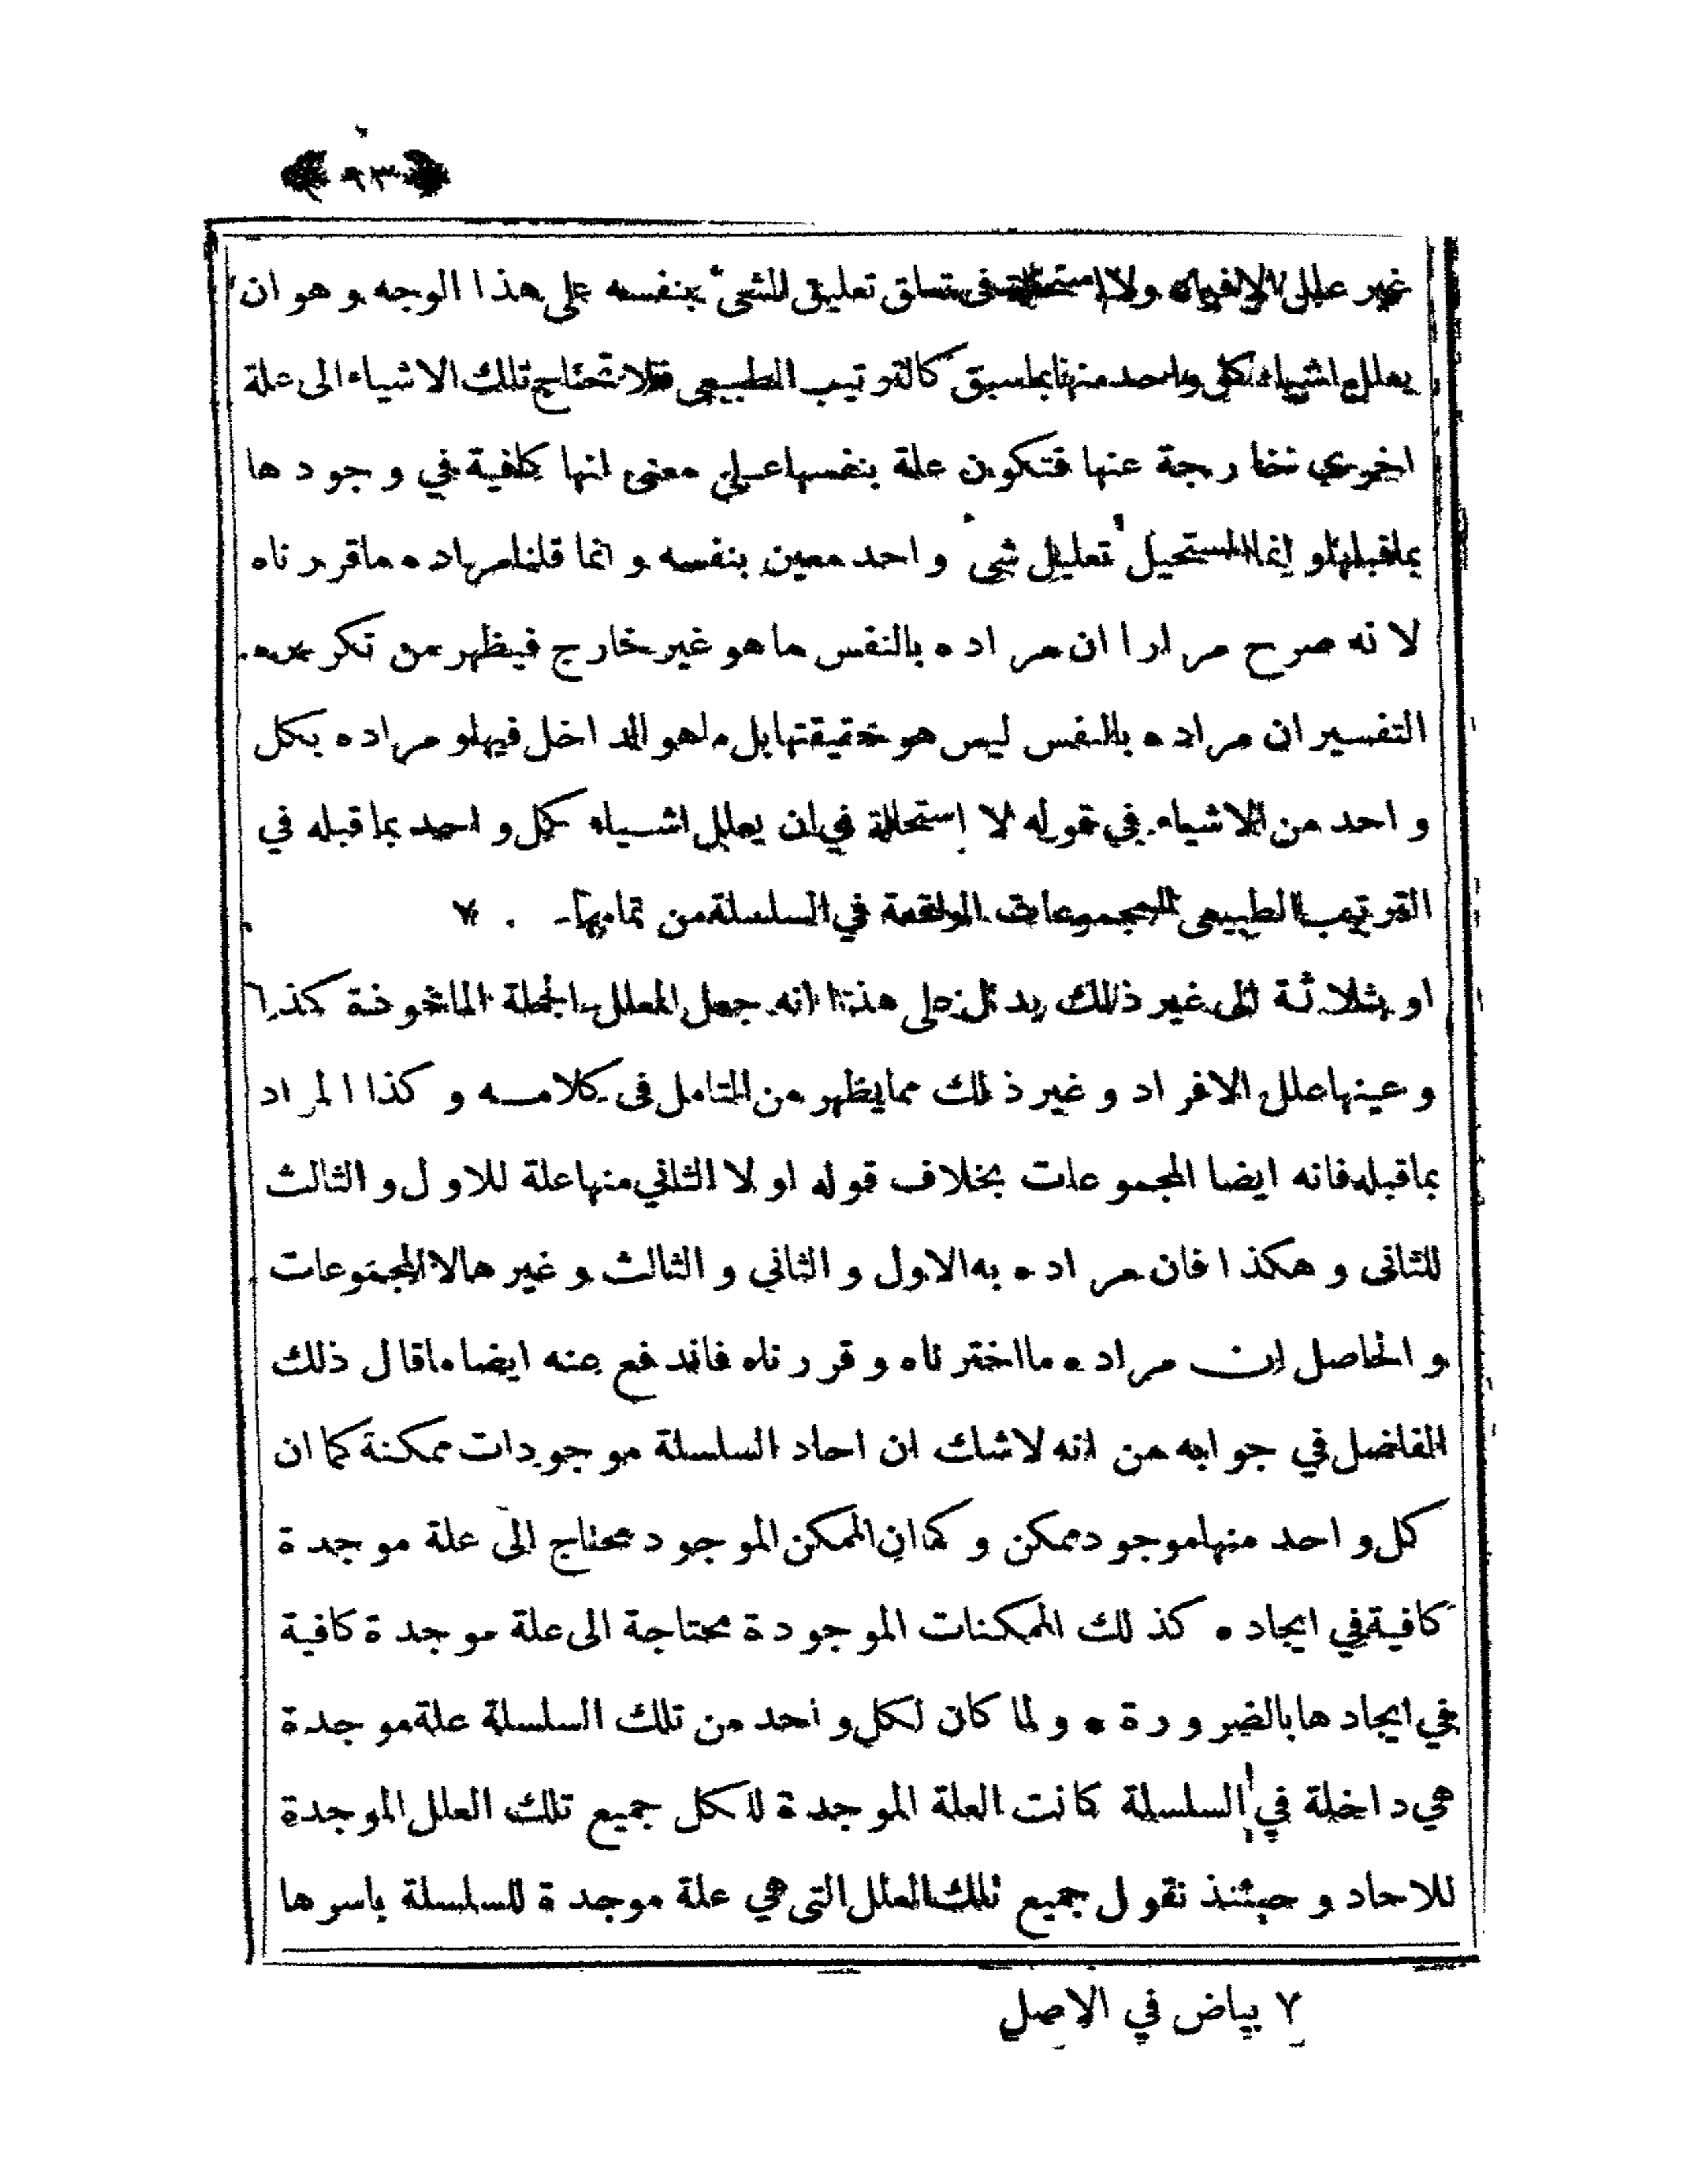 ﴿٩٣﴾
غير علل الافراد ولا استحالة في تعلق تعليق للشئ بنفسه على هذا الوجه و هو ان
يعلل اشياء كل واحد منها بما سبق كالترتيب الطبيعى فلا تحتاج تلك الاشياء الى علة
اخرى خارجة عنها فتكون علة بنفسها على معنى انها كافية في وجودها
بما قبلها و انما المستحيل تعليل شئ واحد معين بنفسه و انما قلنا مراده ماقررناه
لانه صرح مرارا ان مراده بالنفس ما هو غير خارج فيظهر من
التفسير ان مراده بالنفس ليس هو حقيقتها بل ما هو الداخل فيها و مراده بكل
واحد من الاشياء في قوله لا استحالة في ان يعلل اشياء كل واحد بما قبله في
الترتيب الطبيعى المجموعات الواقعة في السلسلة من تمامها ٧
او بثلاثة الى غير ذلك يدل على هذا انه جعل المعلل الجملة الماخوذة كذا
و عينها علل الافراد و غير ذلك مما يظهر من التامل فى كلامه و كذا المراد
بما قبله فانه ايضا المجموعات بخلاف قوله اولا الثاني منها علة للاول و الثالث
للثانى و هكذا فان مراده به الاول و الثاني و الثالث و غيرها لا المجموعات
و الحاصل ان مراده ما اخترناه و قررناه فاندفع عنه ايضا ما قال ذلك
الفاضل في جوابه من انه لاشك ان احاد السلسلة موجودات ممكنة كما ان
كل واحد منها موجود ممكن و كما ان الممكن الموجود محتاج الى علة موجدة
كافية في ايجاده كذلك الممكنات الموجودة محتاجة الى علة موجدة كافية
في ايجادها بالضرورة • و لما كان لكل واحد من تلك السلسلة علة موجدة
هي داخلة في السلسلة كانت العلة الموجدة للكل جميع تلك العلل الموجدة
للاحاد و حينئذ نقول جميع تلك العلل التى هي علة موجدة للسلسلة باسرها
٧ بياض في الاصل